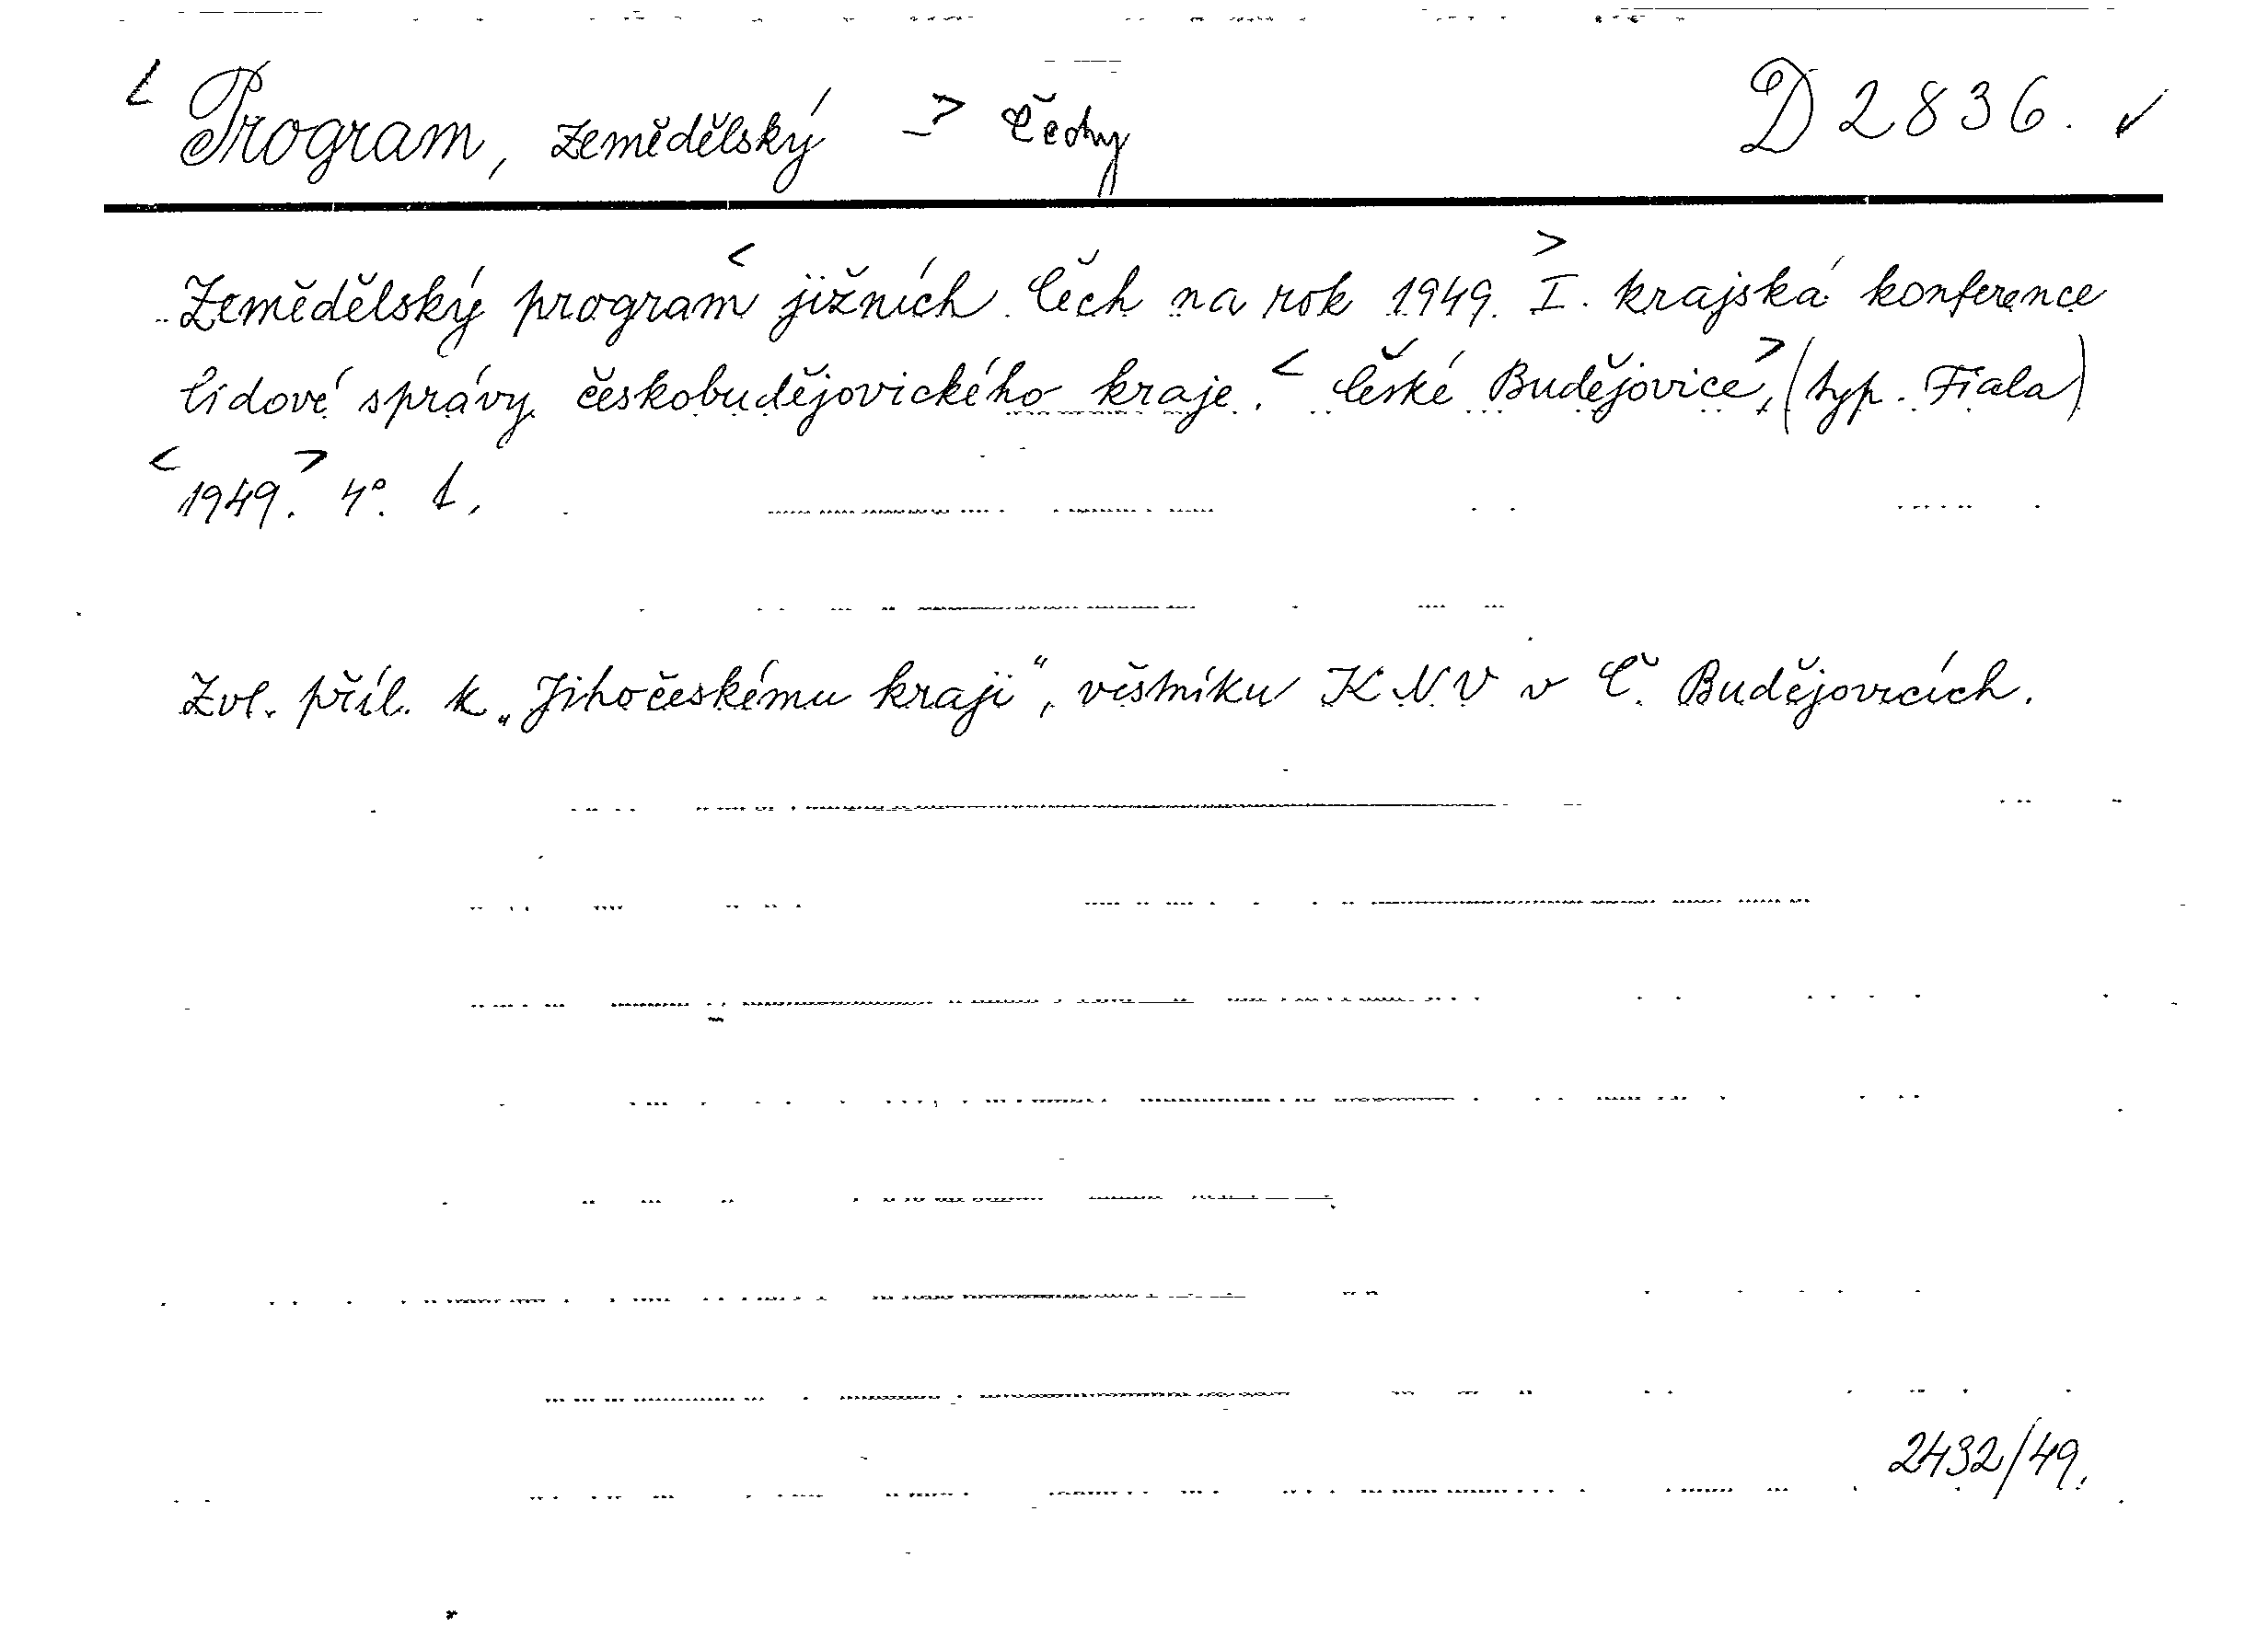 < Program, zemědělský -> Čechy D 2836. ✓
Zemědělský program < jižních Čech na rok 1949. > I. krajská konference
lidové správy českobudějovického kraje. < České Budějovice >, (typ. Fiala)
< 1949. > 4°. 1.
Zvl. příl. k „Jihočeskému kraji“, věstníku KNV v Č. Budějovicích.
2432/49.